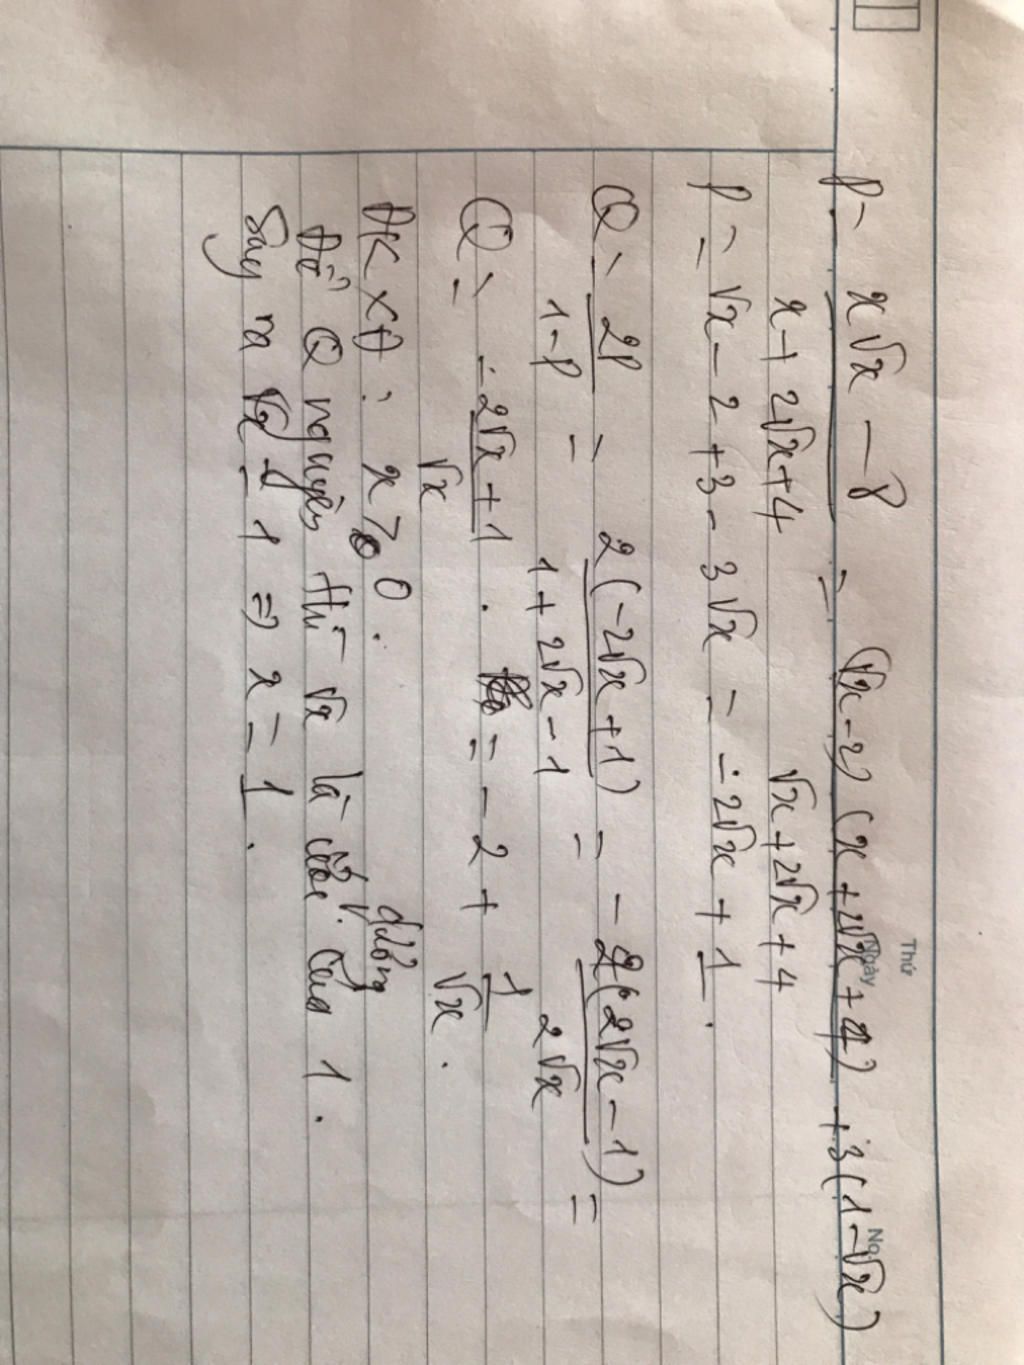 Thứ
Ngày No.
P = x√x - 8 / x + 2√x + 4 = (√x - 2)(x + 2√x + 4) / √x + 2√x + 4 + 3(1 - √x)
P = √x - 2 + 3 - 3√x = -2√x + 1.
Q = 2P / 1 - P = 2(-2√x + 1) / 1 + 2√x - 1 = -2(2√x - 1) / 2√x =
Q = -2√x + 1 / √x . = -2 + 1 / √x .
ĐKXĐ : x > 0 .
Để Q nguyên thì √x là ước dương của 1 .
Suy ra √x = 1 => x = 1 .